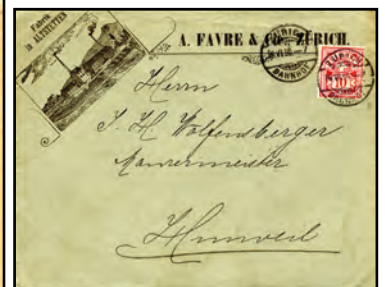 Fabrik
in ALTSTETTEN
A. FAVRE & CO. ZÜRICH.
ZÜRICH
BAHNHOF
ZÜRICH
10
Herrn
J. H. Wolfensberger
Maurermeister
Hinweil